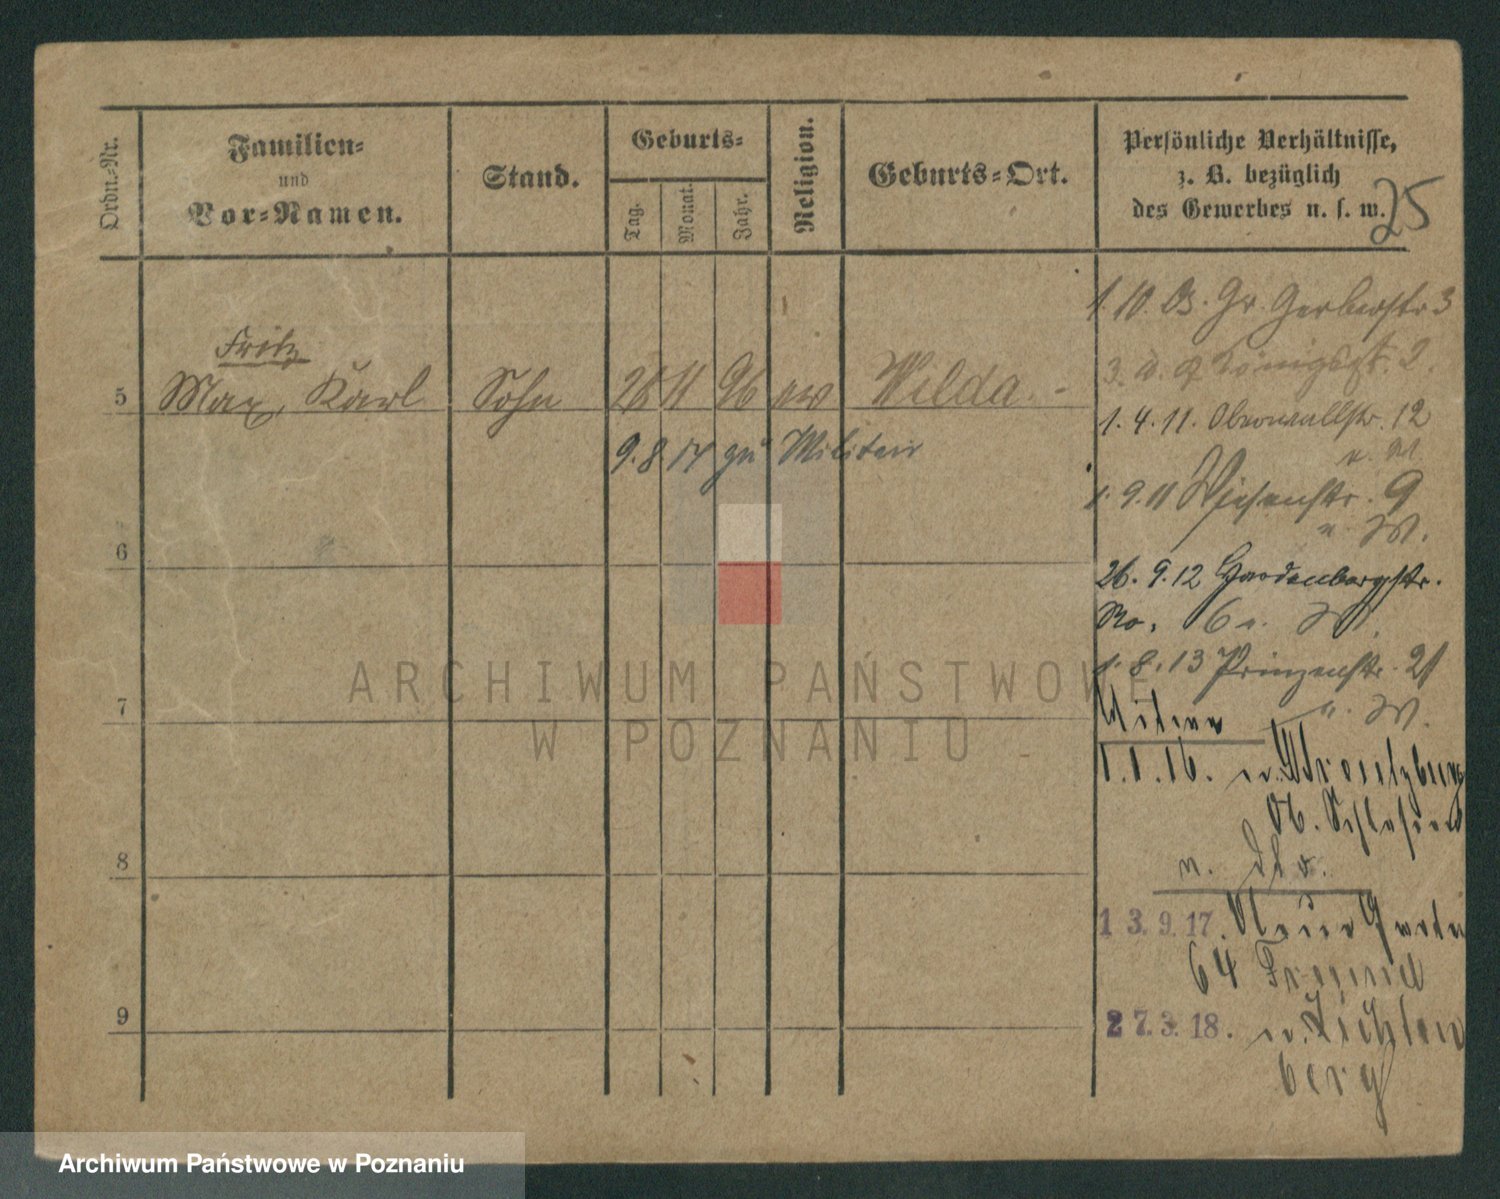 Ordn.-Nr.
Familien-
und
Vor-Namen.
Stand.
Geburts-
Tag.
Monat.
Jahr.
Religion.
Geburts-Ort.
Persönliche Verhältnisse,
z. B. bezüglich
des Gewerbes u. s. w.
25
Fritz
5 Max, Karl Sohn 26 11 96 ev Wilda.
9.8.17 zu Militair
6
7
8
9
1. 10. 03. Gr. Gerberstr 3
Königspl. 2.
1. 4. 11. Oberwallstr. 12
n. W.
1. 9. 11 Wiesenstr. 9
n. W.
26. 9. 12 Hardenbergstr.
No. 6 n. W.
1. 8. 13 Prinzenstr. 21
n. W.
Witwe
1.1.16. n. Kreutzburg
Ob. Schlesien
13.9.17. Neue Garten
64 Freund
27.3.18. n. Lichten
berg
ARCHIWUM PAŃSTWOWE
W POZNANIU
Archiwum Państwowe w Poznaniu